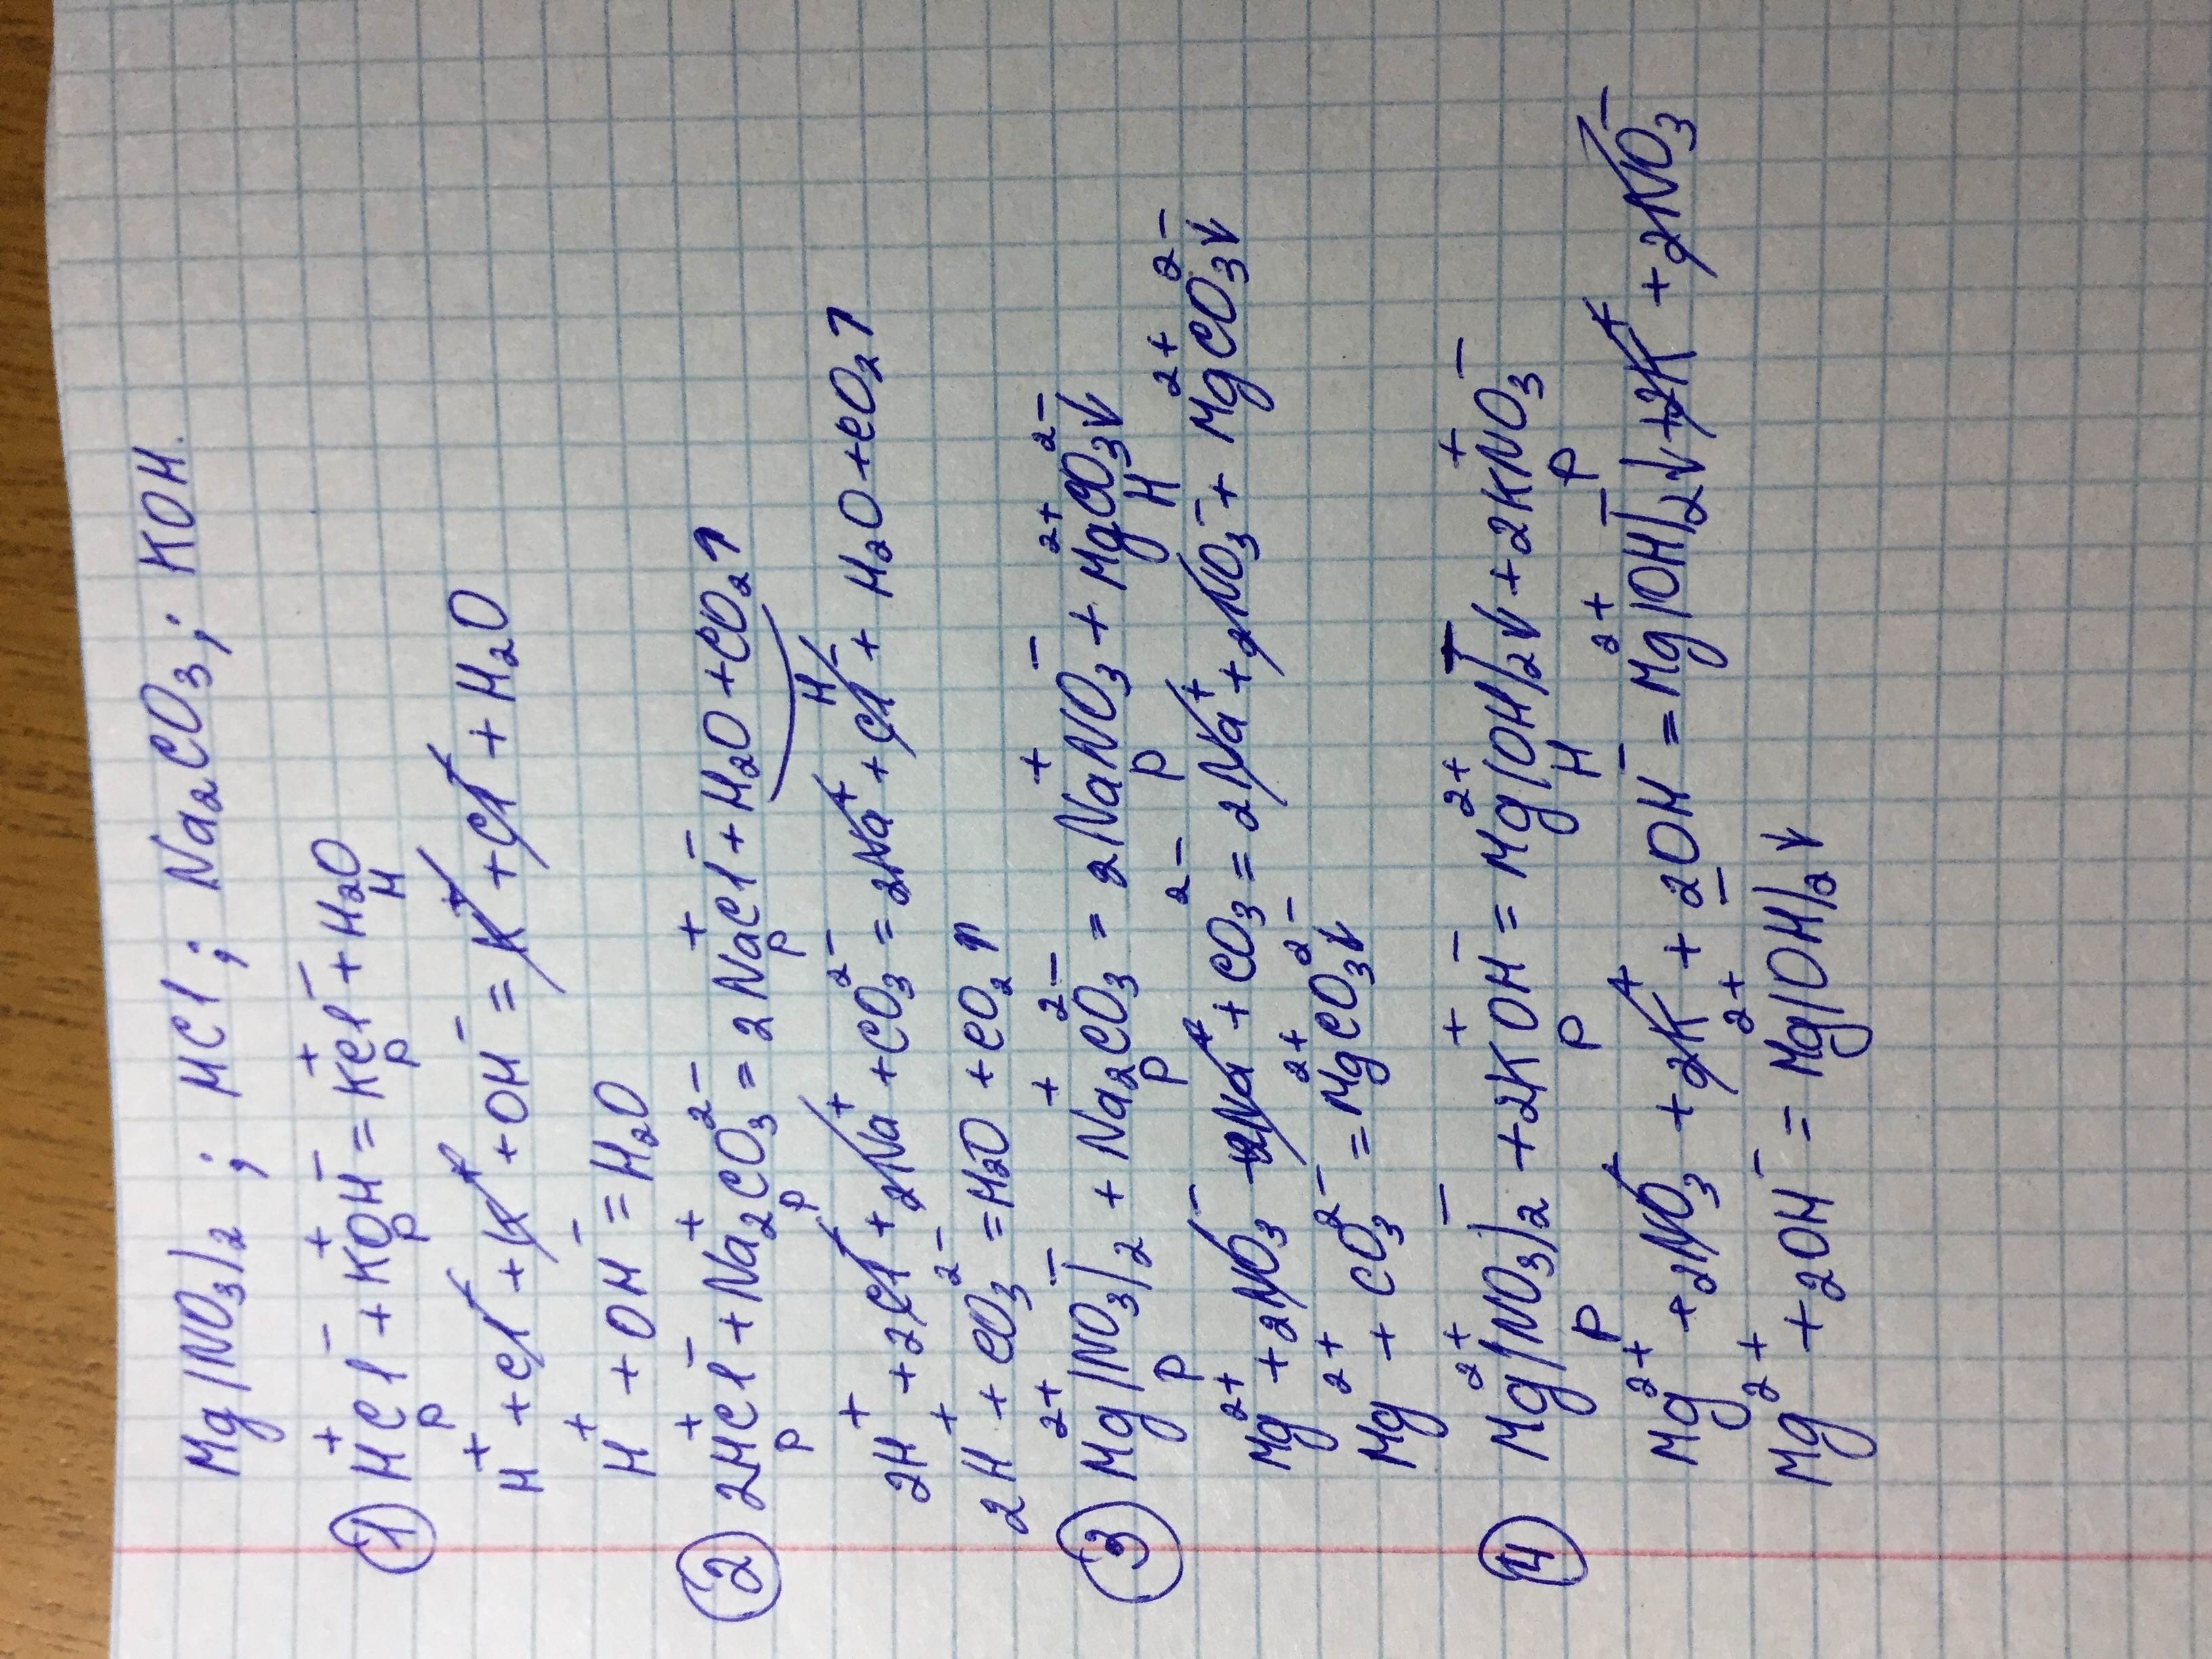 Mg(NO₃)₂ ; HCl ; Na₂CO₃ ; KOH.
① H⁺Cl⁻ + K⁺OH⁻ = K⁺Cl⁻ + H₂O
р р р Н
H⁺ + Cl⁻ + K⁺ + OH⁻ = K⁺ + Cl⁻ + H₂O
H⁺ + OH⁻ = H₂O
② 2H⁺Cl⁻ + Na₂⁺CO₃²⁻ = 2Na⁺Cl⁻ + H₂O + CO₂↑
р р р Н
2H⁺ + 2Cl⁻ + 2Na⁺ + CO₃²⁻ = 2Na⁺ + Cl⁻ + H₂O + CO₂↑
2H⁺ + CO₃²⁻ = H₂O + CO₂↑
③ Mg²⁺(NO₃)₂⁻ + Na₂⁺CO₃²⁻ = 2Na⁺NO₃⁻ + Mg²⁺CO₃²⁻↓
р р р Н
Mg²⁺ + 2NO₃⁻ + 2Na⁺ + CO₃²⁻ = 2Na⁺ + 2NO₃⁻ + Mg²⁺CO₃²⁻↓
Mg²⁺ + CO₃²⁻ = Mg²⁺CO₃²⁻↓
④ Mg²⁺(NO₃)₂⁻ + 2K⁺OH⁻ = Mg²⁺(OH)₂⁻↓ + 2K⁺NO₃⁻
р р Н р
Mg²⁺ + 2NO₃⁻ + 2K⁺ + 2OH⁻ = Mg²⁺(OH)₂⁻↓ + 2K⁺ + 2NO₃⁻
Mg²⁺ + 2OH⁻ = Mg²⁺(OH)₂⁻↓